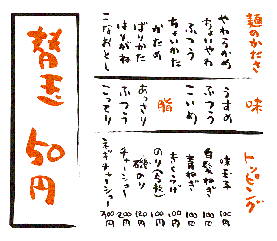 麺のかたさ
やわらかめ
ちょいやわ
ふつう
ちょいかた
かため
ばりかた
はりがね
こなおとし
味
うすめ
こいめ
脂
あっさり
ふつう
こってり
トッピング
味玉子 100円
白髪ねぎ 100円
青ねぎ 100円
きくらげ 100円
のり(5枚) 100円
磯のり 120円
チャーシュー 200円
ネギチャーシュー 300円
替玉 50円